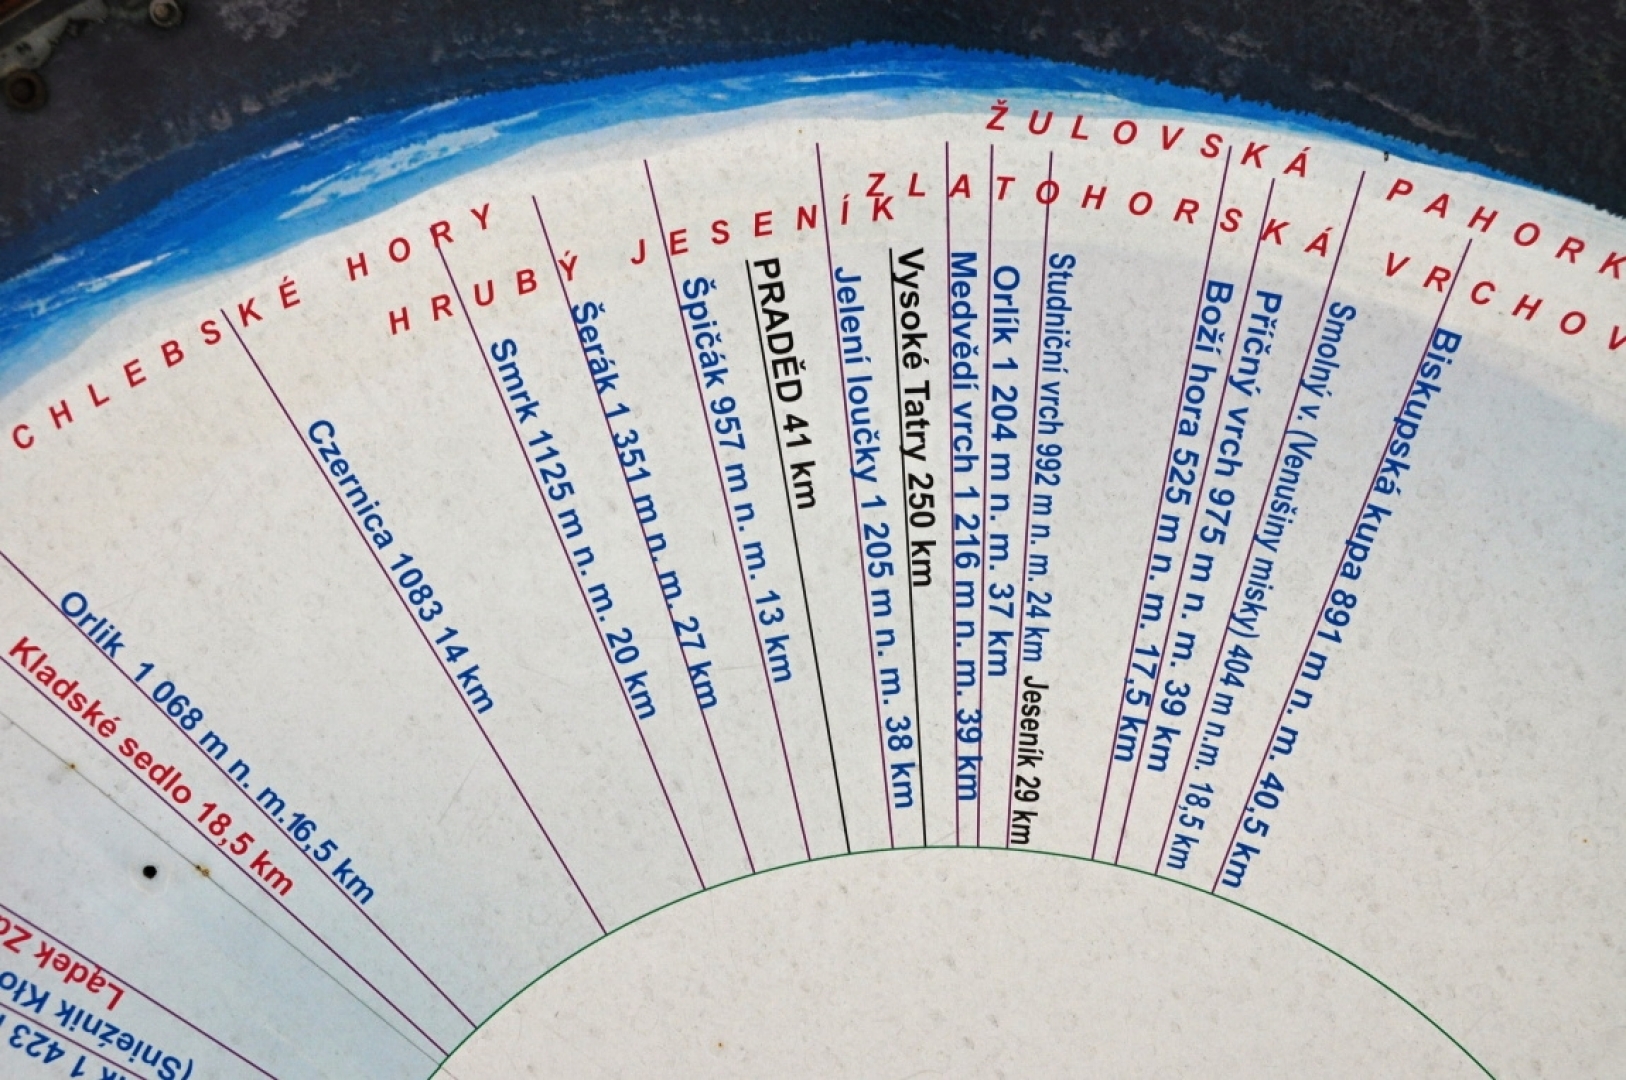 ŽULOVSKÁ PAHORK
ZLATOHORSKÁ VRCHOV
CHLEBSKÉ HORY
HRUBÝ JESENÍK
Lądek
(Snieżnik Kło
1 423
Kladské sedlo 18,5 km
Orlik 1 068 m n. m.16,5 km
Czernica 1083 14 km
Smrk 1125 m n. m. 20 km
Šerák 1 351 m n. m. 27 km
Špičák 957 m n. m. 13 km
PRADĚD 41 km
Jelení loučky 1 205 m n. m. 38 km
Vysoké Tatry 250 km
Medvědí vrch 1 216 m n. m. 39 km
Orlík 1 204 m n. m. 37 km
Studniční vrch 992 m n. m. 24 km Jeseník 29 km
Boží hora 525 m n. m. 17,5 km
Příčný vrch 975 m n. m. 39 km
Smolný v. (Venušiny misky) 404 m n.m. 18,5 km
Biskupská kupa 891 m n. m. 40,5 km